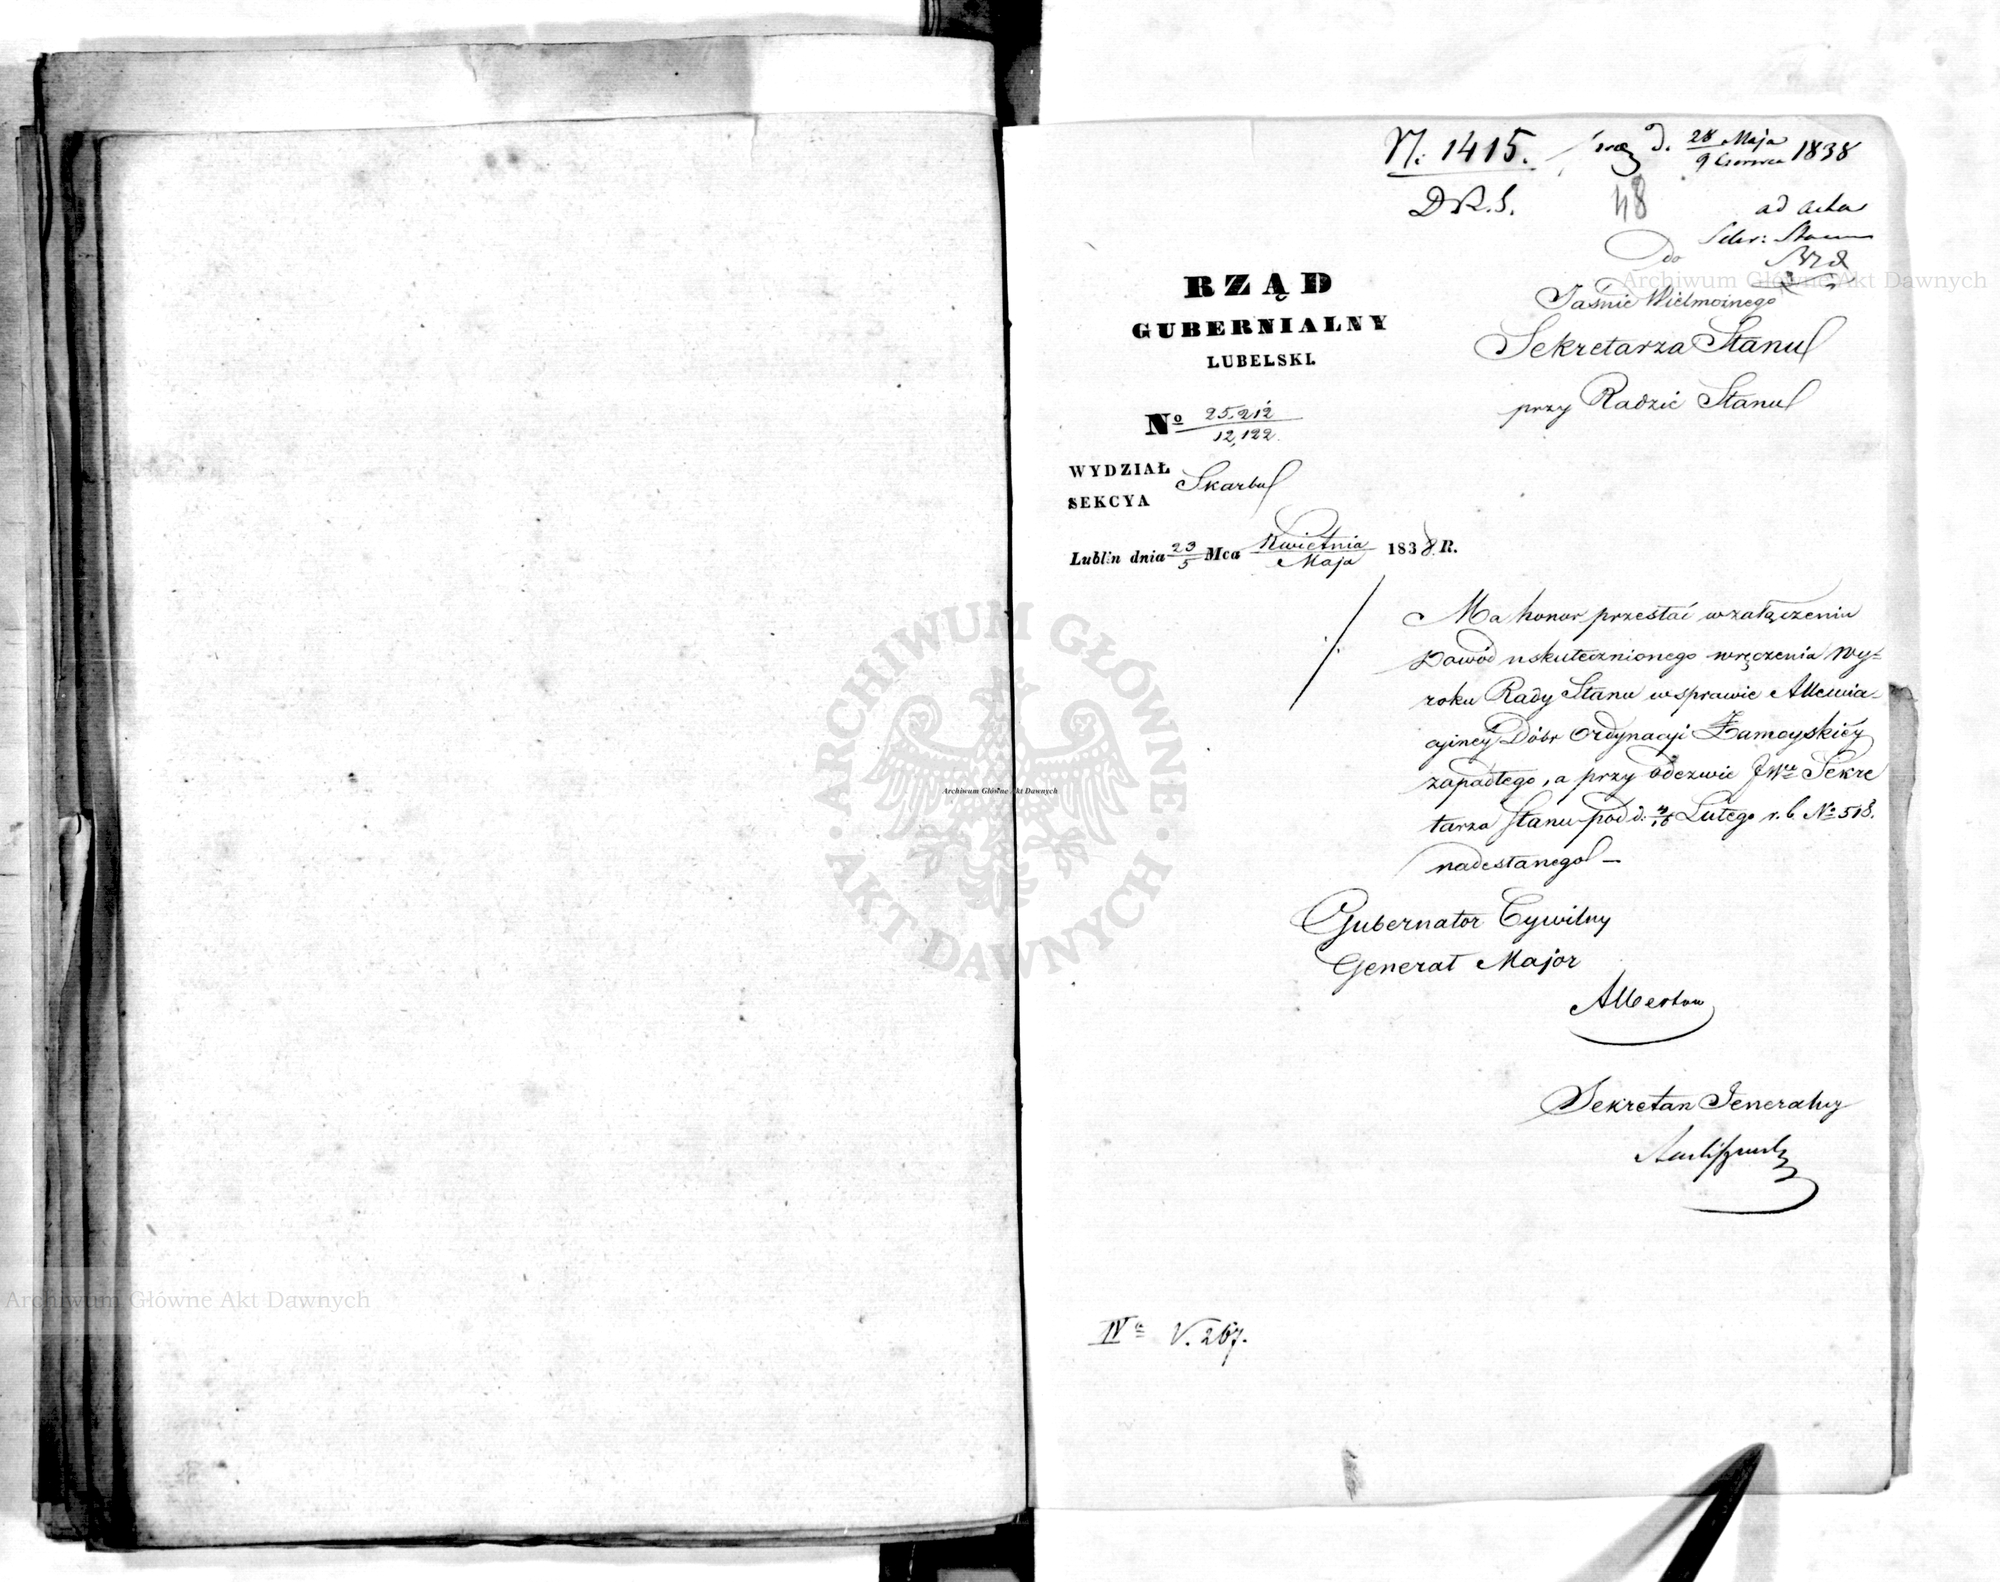 N. 1415.
d. 28 Maja
9 Czerwca 1838
D.R.S.
48
ad acta
Sekr: Stanu
RZĄD
GUBERNIALNY
LUBELSKI.
No 25,212
12,122.
WYDZIAŁ
SEKCYA
Skarbu
Lublin dnia 23/5 Mca Kwietnia/Maja 1838 R.
do
Jaśnie Wielmożnego
Sekretarza Stanu
przy Radzie Stanu
Ma honor przesłać w załączeniu
Dowód uskutecznionego wręczenia Wy=
roku Rady Stanu w sprawie Allewia-
cyinéy Dóbr Ordynacyi Zamoyskiéy
zapadłego, a przy odezwie JWgo Sekre
tarza Stanu pod d. 4/16 Lutego r. b. No 518.
nadesłanego —
Gubernator Cywilny
Generał Major
Albertow
Sekretarz Jeneralny
IVa V. 267.
Archiwum Główne Akt Dawnych
ARCHIWUM GŁÓWNE AKT DAWNYCH
Archiwum Główne Akt Dawnych
Archiwum Główne Akt Dawnych